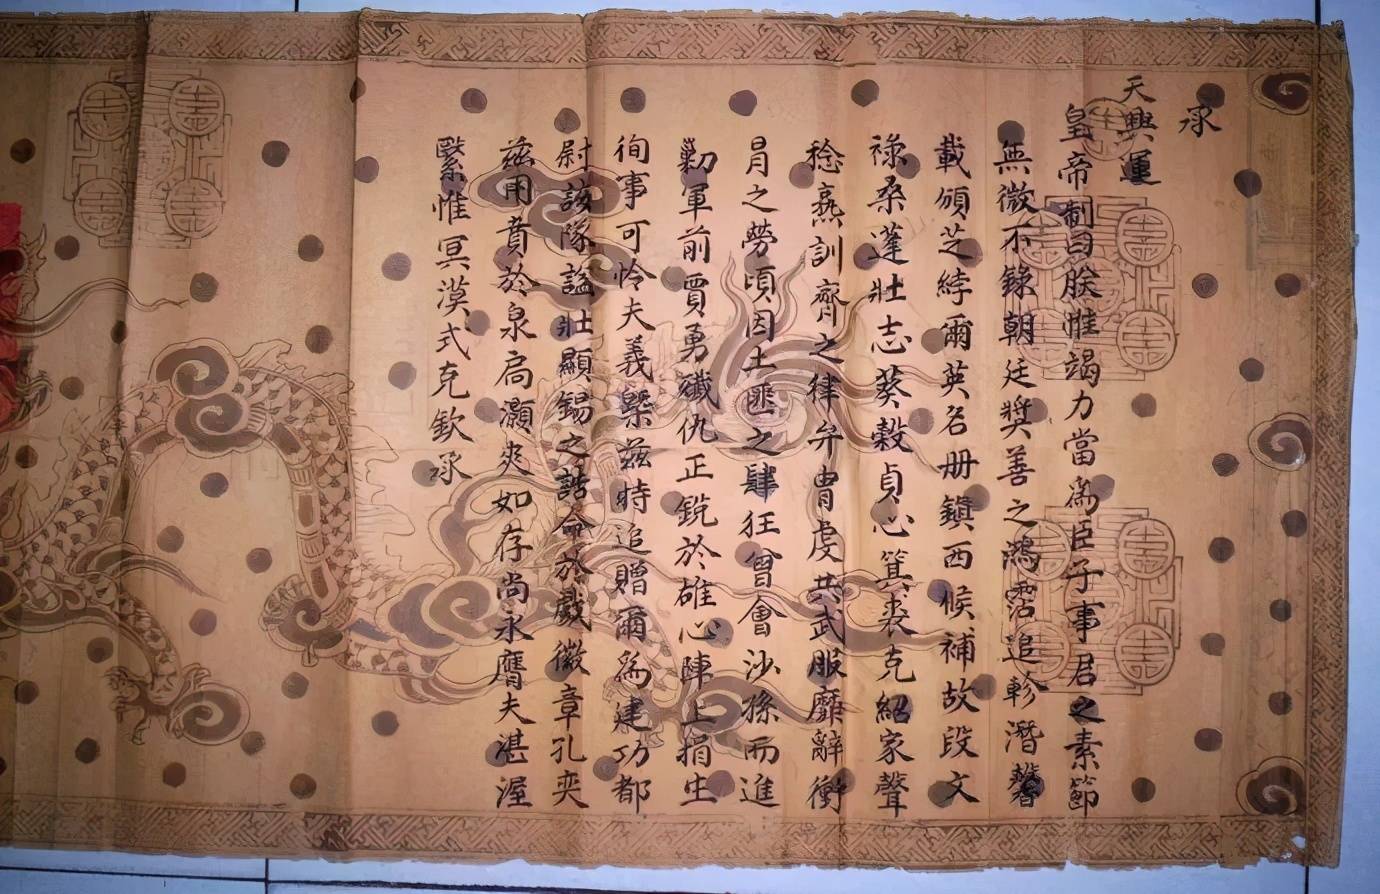 承
天興運
皇帝制曰朕惟竭力當爲臣子事君之素節
無微不錄朝廷奬善之鴻霑追軫潛馨
載頒芝綍爾英名册鎮西候補故段文
祿桑蓬壯志葵榖貞心箕裘克紹家聲
稔熟訓齊之律弁胄虔共武服靡辭衝
冐之勞頃因土匪之肆狂曾會沙孫而進
勦軍前賈勇殲仇正銳於雄心陣上捐生
徇事可怜夫義槩茲特追贈爾爲建功都
尉該隊謚壯顯錫之誥命於戲徽章孔奕
茲用賁於泉扃灝爽如存尚永膺夫湛渥
繄惟冥漠式克欽承